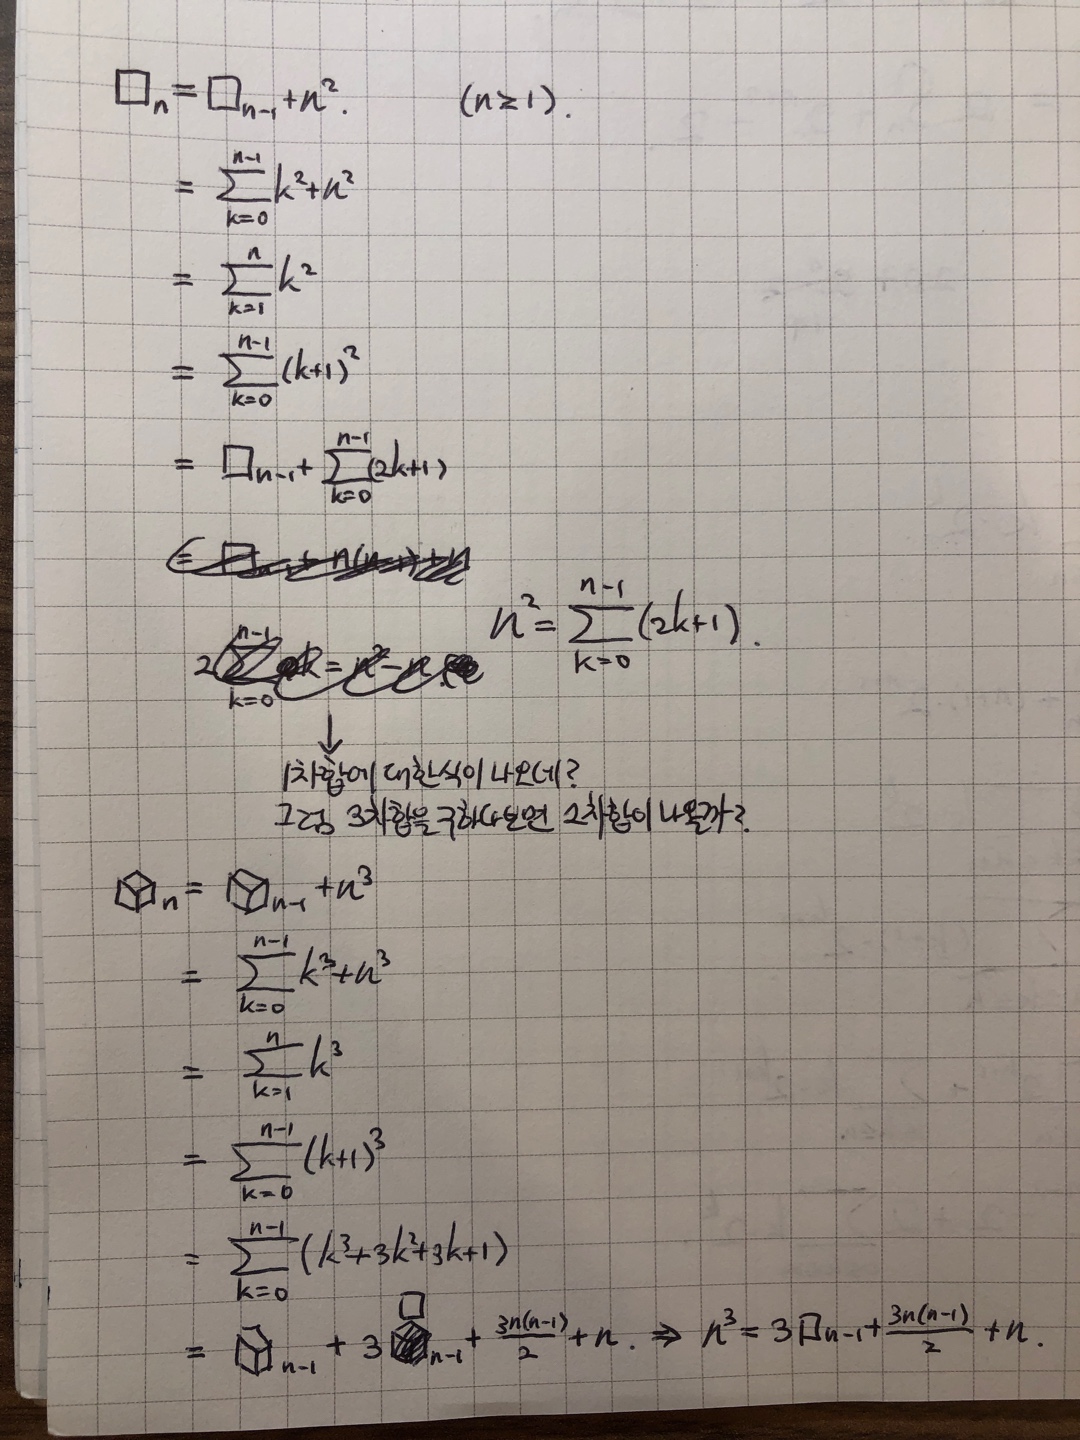 □ₙ = □ₙ₋₁ + n². (n ≥ 1).
= ∑_{k=0}^{n-1} k² + n²
= ∑_{k=1}^{n} k²
= ∑_{k=0}^{n-1} (k+1)²
= □ₙ₋₁ + ∑_{k=0}^{n-1} (2k+1)
n² = ∑_{k=0}^{n-1} (2k+1).
↓
1차합에 대한식이 나오네?
그럼 3차합을 구하다보면 2차합이 나올까?
⬚ₙ = ⬚ₙ₋₁ + n³
= ∑_{k=0}^{n-1} k³ + n³
= ∑_{k=1}^{n} k³
= ∑_{k=0}^{n-1} (k+1)³
= ∑_{k=0}^{n-1} (k³+3k²+3k+1)
= ⬚ₙ₋₁ + 3□ₙ₋₁ + 3n(n-1)/2 + n. ⇒ n³ = 3□ₙ₋₁ + 3n(n-1)/2 + n.